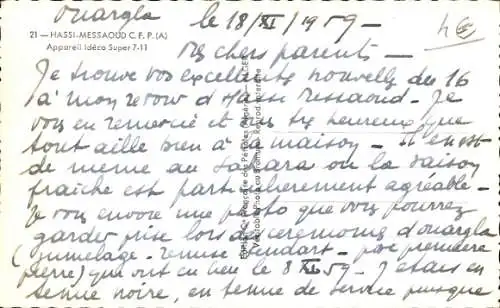 Ouargla le 18/XI/1959 –
4€
21 — HASSI-MESSAOUD C. F. P. (A)
Appareil Idéco Super 7-11
Mes chers parents –
Je trouve vos excellentes nouvelles du 16
à mon retour d'Hassi Messaoud – Je
vous en remercie et suis très heureux que
tout aille bien à la maison – Il en est
de même au Sahara où la saison
fraîche est particulièrement agréable –
Je vous envoie une photo que vous pourrez
garder prise lors des cérémonies d'Ouargla
(Jumelage – remise étendart – pose première
pierre) qui ont eu lieu le 8 XI 59 – J'étais en
tenue noire, en tenue de service puisque